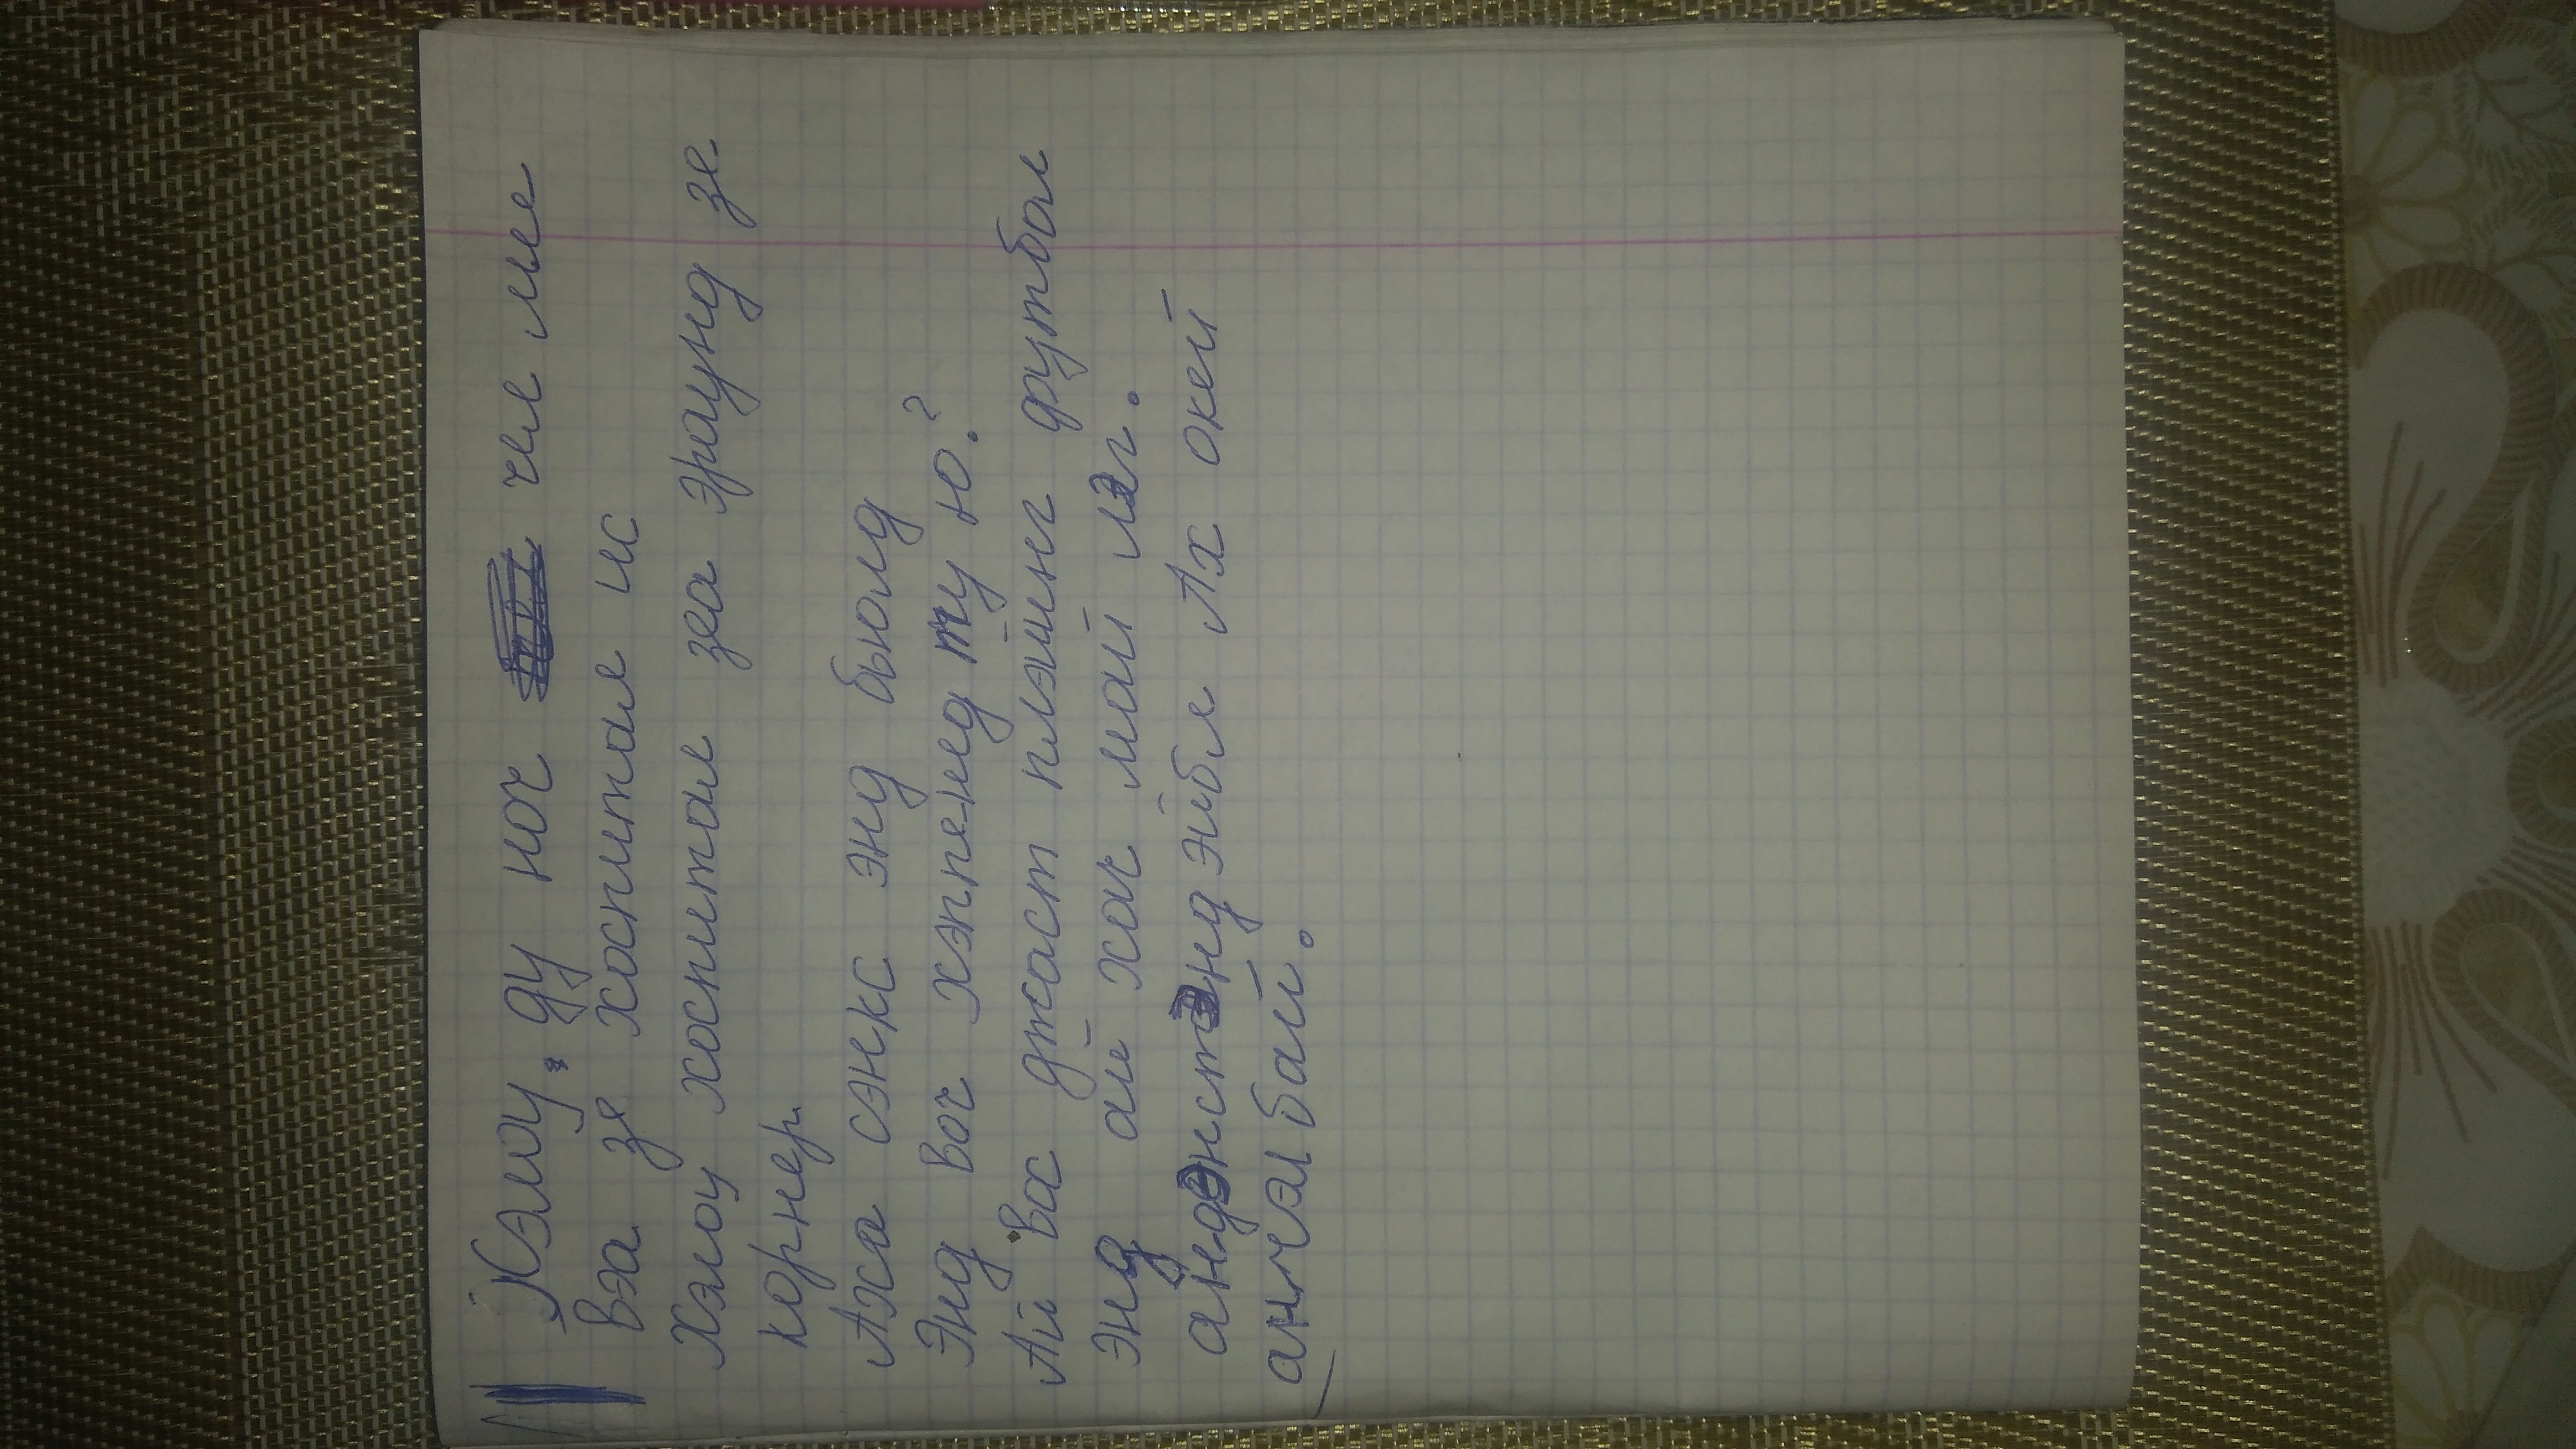 Хэлоу, ду ноч чел ме
вэа зе хоспитал ис
Хэлоу хоспитал зеа эраунд зе
корнер
Аха сэнкс энд бьюлд
Энд воч хэппенед ту ю.?
Ай вос джаст плэйинг футбол
энд ай хоч май лэг.
андэнстэнд эйбл Ах окей
анчэл бай.